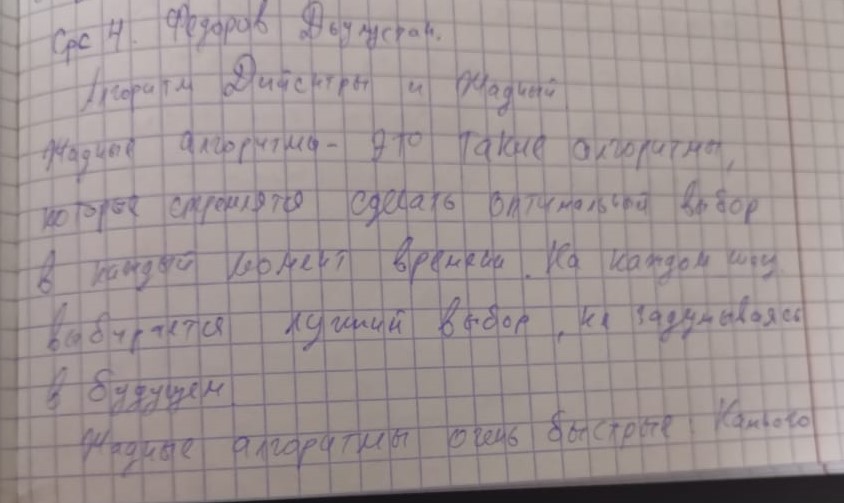 Срс 4. Федоров
Алгоритм Дийкстры и Жадный
Жадные алгоритмы - это такие алгоритмы,
которые стремлятся сделать оптимальный выбор
в каждый момент времени. На каждом шагу
выбирается лучший выбор, не задумываясь
в будущем.
Жадные алгоритмы очень быстрые.